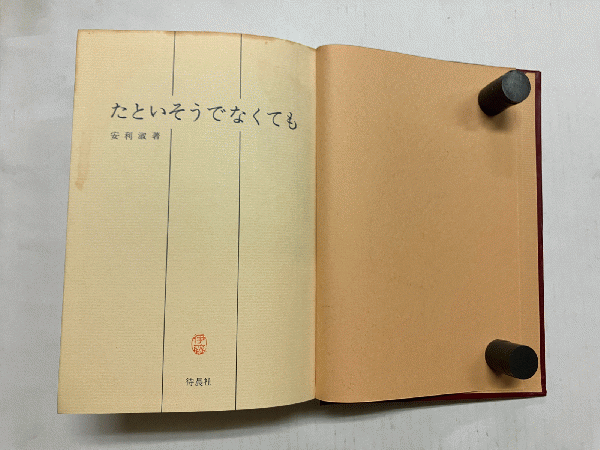 たといそうでなくても
安利淑著
伊藤
待晨社